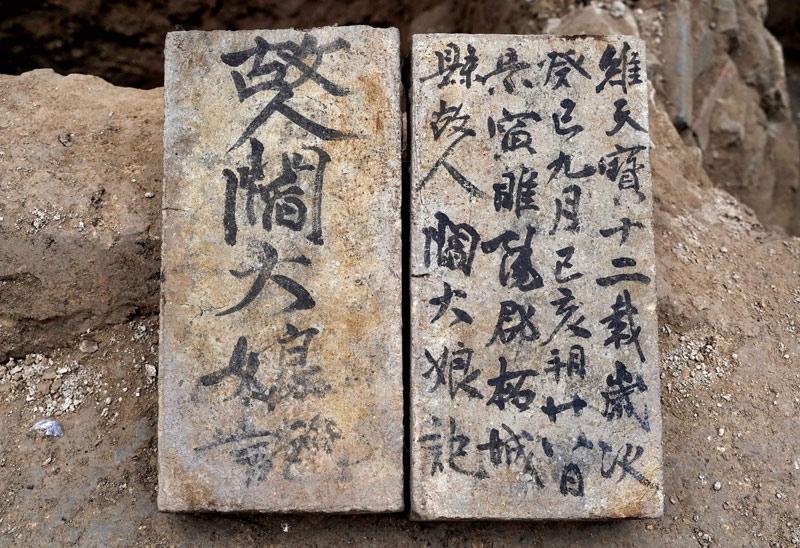 維天寶十二載歲次
癸巳九月己亥朔廿八日
景寅睢陽郡柘城
縣故人閻大娘記
故人閻大娘